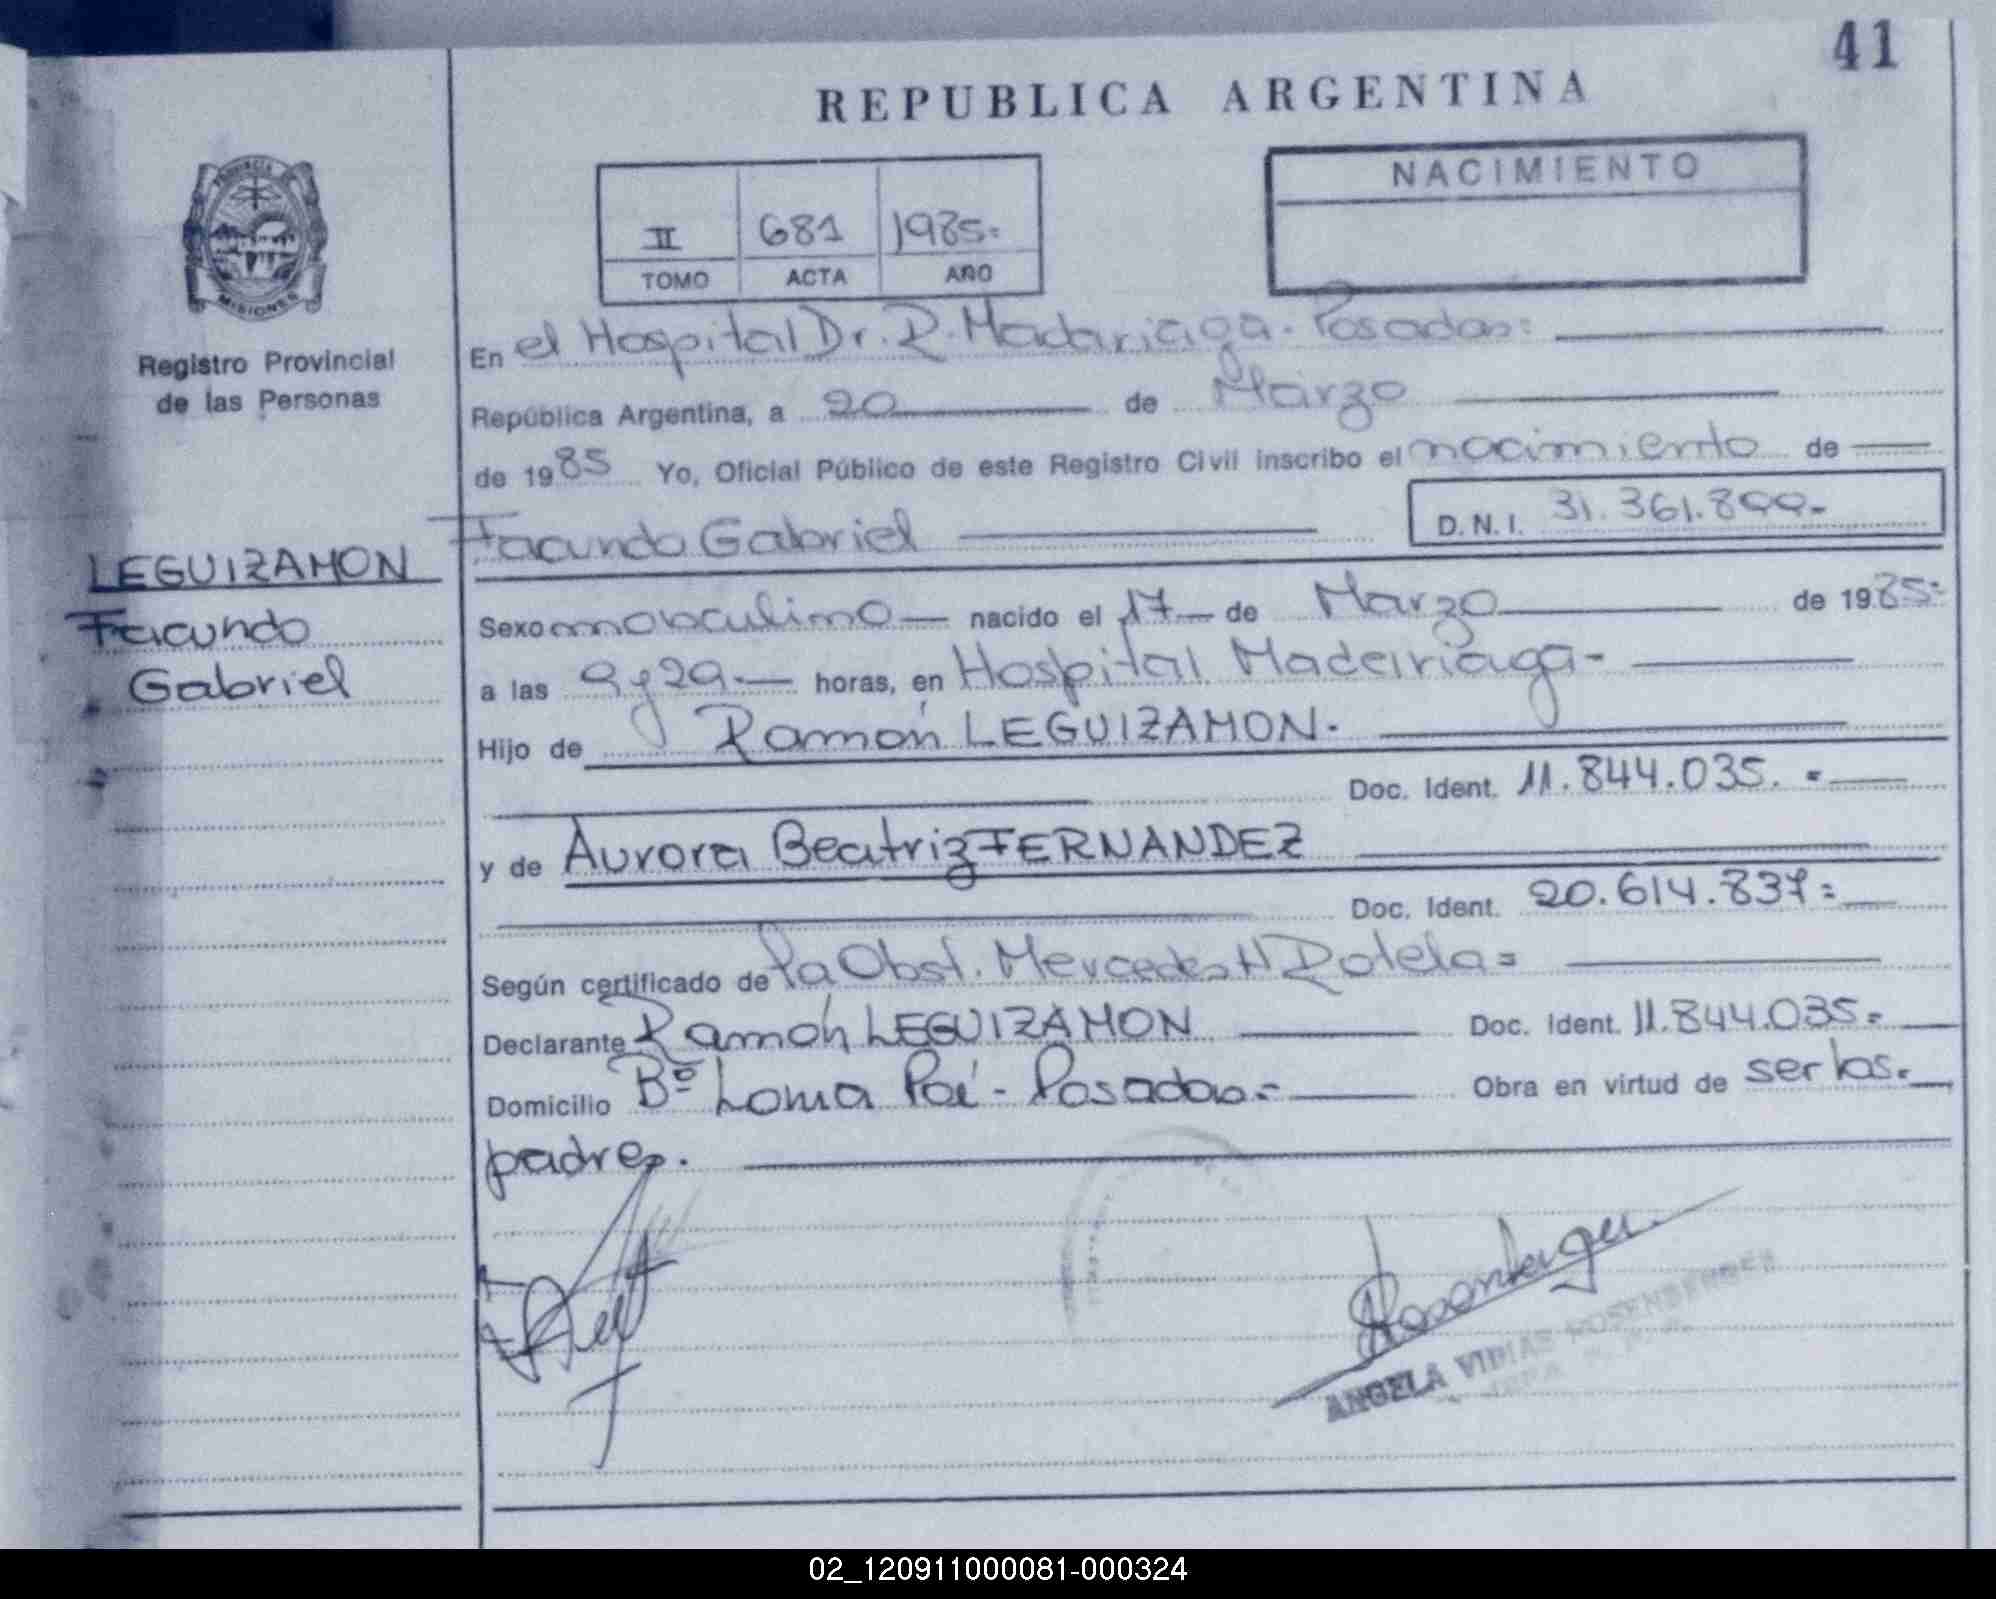 41
REPUBLICA ARGENTINA
PROVINCIA DE MISIONES
Registro Provincial
de las Personas
II 681 1985.
TOMO ACTA AÑO
NACIMIENTO
En el Hospital Dr. R. Madariaga. Posadas=
República Argentina, a 20 de Marzo
de 1985 Yo, Oficial Público de este Registro Civil inscribo el nacimiento de
Facundo Gabriel D.N.I. 31.361.899.-
LEGUIZAMON
Facundo
Gabriel
Sexo masculino nacido el 17 de Marzo de 1985=
a las 9 y 29.- horas, en Hospital Madariaga-
Hijo de Ramón LEGUIZAMON.
Doc. Ident. 11.844.035.=
y de Aurora Beatriz FERNANDEZ
Doc. Ident. 20.614.837=
Según certificado de la Obst. Mercedes N Rotela=
Declarante Ramón LEGUIZAMON Doc. Ident. 11.844.035=
Domicilio Bº Loma Poí - Posadas.= Obra en virtud de ser los.
padres.
ANGELA ROSENBERGER
02_120911000081-000324